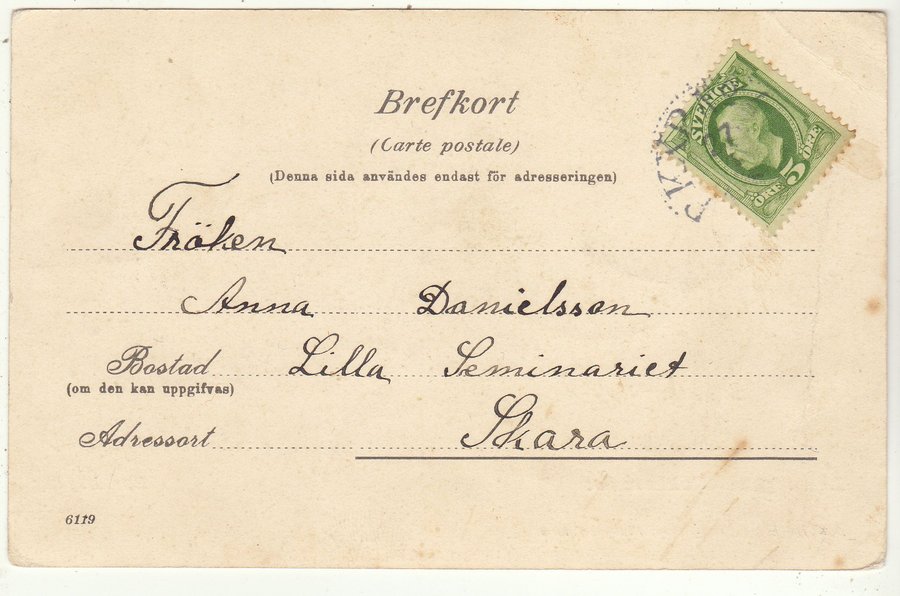 Brefkort
(Carte postale)
(Denna sida användes endast för adresseringen)
SVERIGE
5
ÖRE
27
Fröken
Anna Danielsson
Bostad Lilla Seminariet
(om den kan uppgifvas)
Adressort Skara
6119